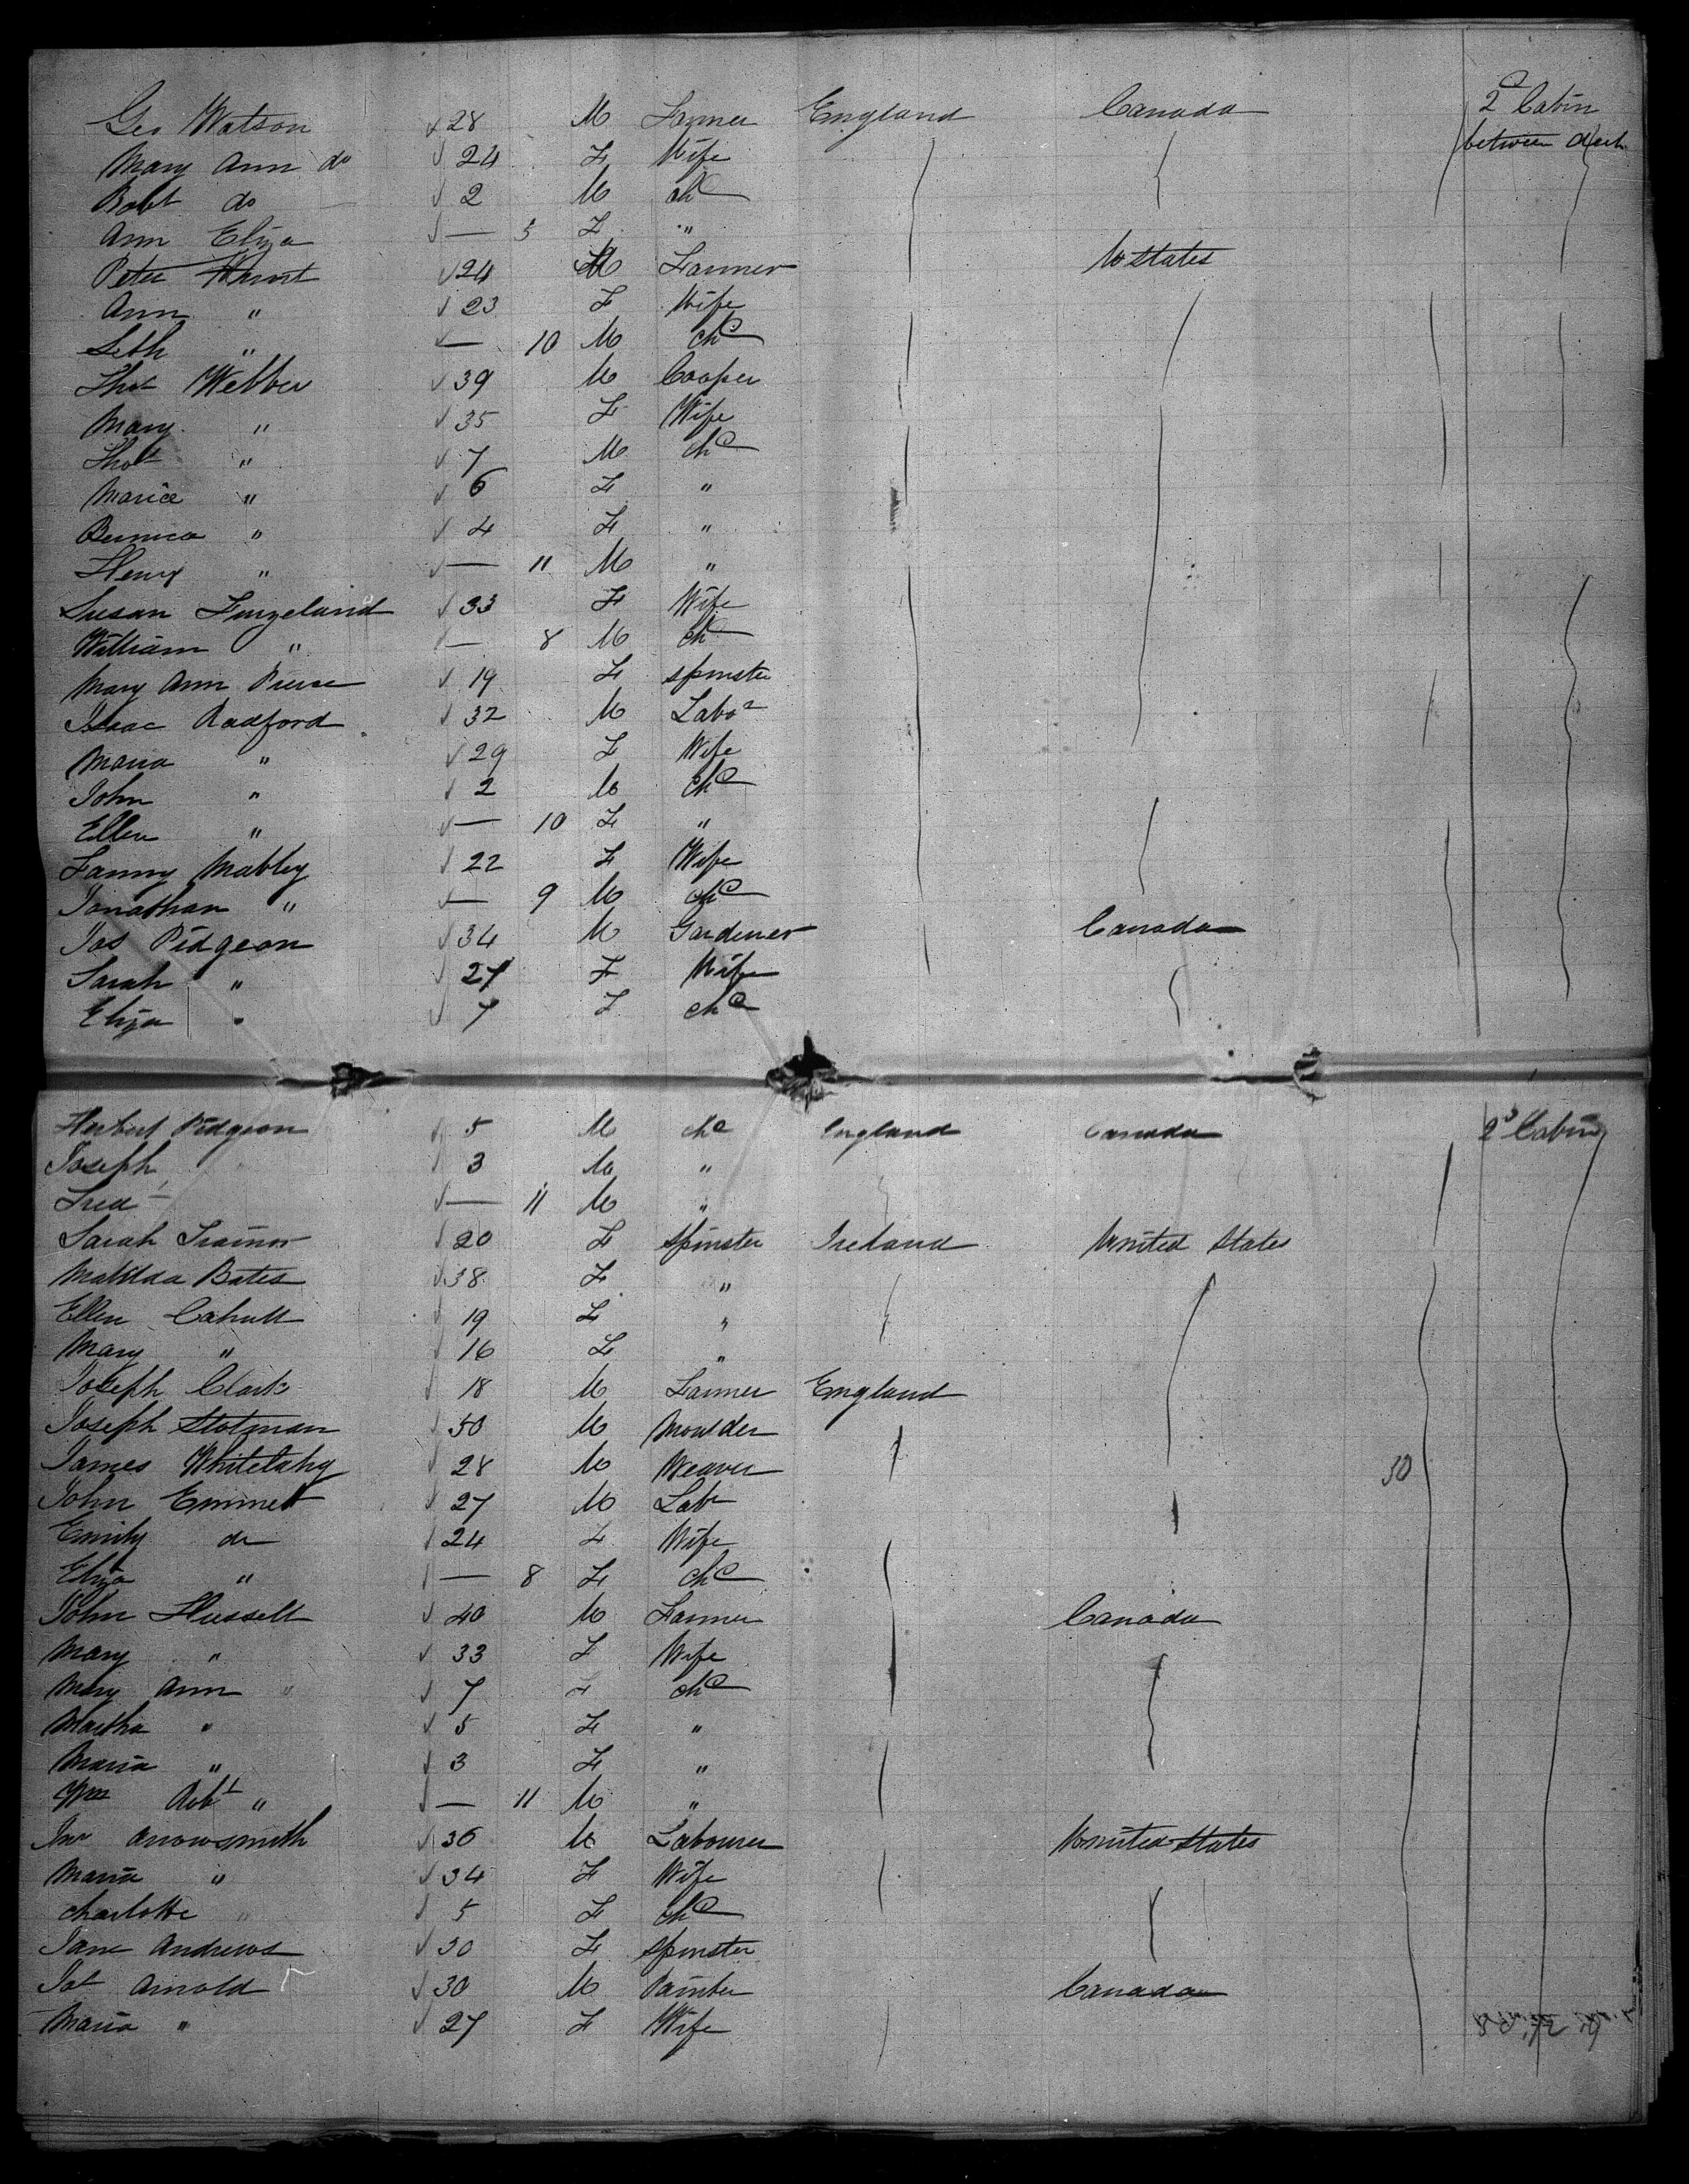 Geo Watson 28 M Farmer England Canada 2d Cabin
Mary Ann do 24 F Wife between deck
Robt do 2 M chd
Ann Eliza — 3 F "
Peter 24 M Farmer U States
Ann " 23 F Wife
Seth " — 10 M chd
Thos Webber 39 M Cooper
Mary " 35 F Wife
Thos " 7 M chd
" 6 F "
" 4 F "
Henry " — 11 M "
Susan 33 F Wife
William " — 8 M chd
Mary Ann 19 F Spinster
Isaac Radford 32 M Labor
Maria " 29 F Wife
John " 2 M chd
Ellen " — 10 F "
Fanny Mabley 22 F Wife
Jonathan " — 9 M chd
Jas Pidgeon 34 M Gardener Canada
Sarah " 27 F Wife
Eliza " 7 F chd
Herbert Pidgeon 5 M chd England Canada 2d Cabin
Joseph 3 M "
Fred — 11 M "
Sarah Trainor 20 F Spinster Ireland United States
Matilda Bates 38 F "
Ellen 19 F "
Mary " 16 F "
Joseph Clark 18 M Farmer England
Joseph Stotman 50 M Moulder
James 28 M Weaver 50
John Emmett 27 M Labr
Emily do 24 F Wife
Eliza " — 8 F chd
John Hussell 40 M Farmer Canada
Mary " 33 F Wife
Mary Ann " 7 F chd
Martha " 5 F "
Maria " 3 F "
Wm Robt " — 11 M "
Jno Arrowsmith 36 M Labourer United States
Maria " 34 F Wife
Charlotte " 5 F chd
Jane Andrews 30 F Spinster
Arnold 30 M Painter Canada
Maria " 27 F Wife